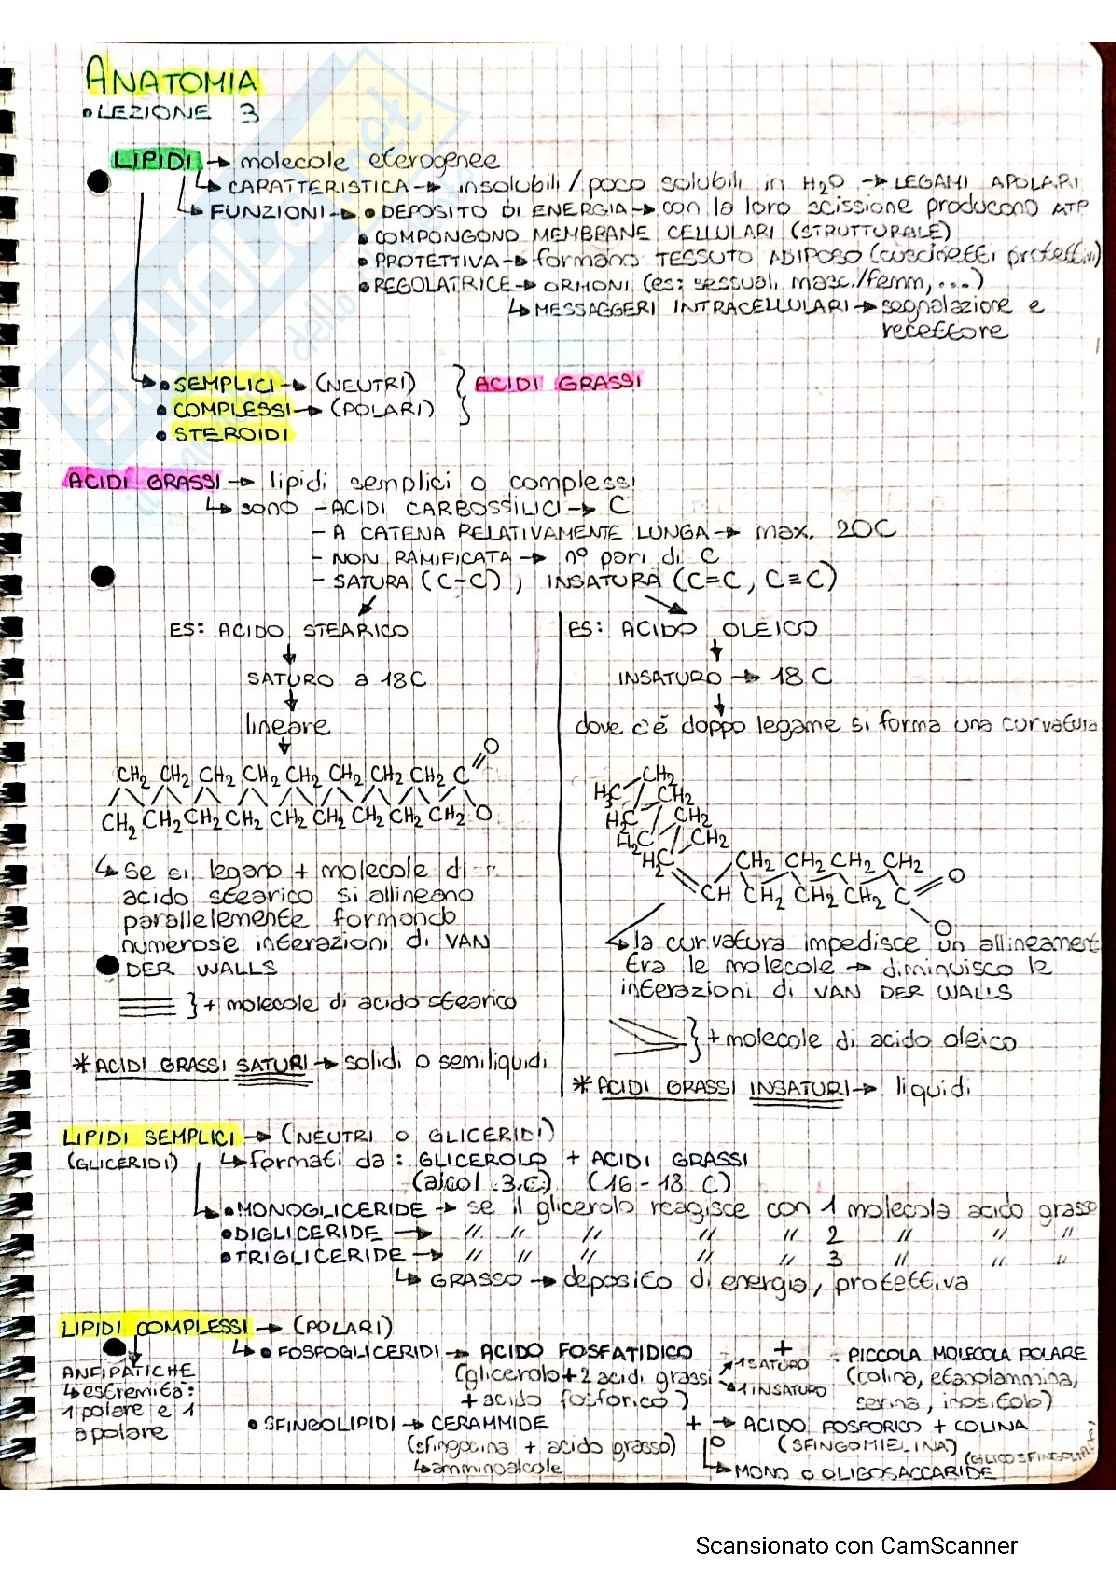 ANATOMIA
• LEZIONE 3
LIPIDI → molecole eterogenee
↳ CARATTERISTICA → insolubili / poco solubili in H₂O → LEGAMI APOLARI
↳ FUNZIONI → • DEPOSITO DI ENERGIA → con la loro scissione producono ATP
• COMPONGONO MEMBRANE CELLULARI (STRUTTURALE)
• PROTETTIVA → formano TESSUTO ADIPOSO (cuscinetti protettivi)
• REGOLATRICE → ORMONI (es: sessuali masc./femm, ...)
↳ MESSAGGERI INTRACELLULARI → segnalazione e
recettore
• SEMPLICI → (NEUTRI) } ACIDI GRASSI
• COMPLESSI → (POLARI)
• STEROIDI
ACIDI GRASSI → lipidi semplici o complessi
↳ sono - ACIDI CARBOSSILICI → C
- A CATENA RELATIVAMENTE LUNGA → max. 20C
- NON RAMIFICATA → n° pari di C
- SATURA (C-C), INSATURA (C=C, C≡C)
ES: ACIDO STEARICO
SATURO a 18C
lineare
CH₂ CH₂ CH₂ CH₂ CH₂ CH₂ CH₂ CH₂ C O
CH₂ CH₂ CH₂ CH₂ CH₂ CH₂ CH₂ CH₂ CH₂ O
↳ se si legano + molecole di
acido stearico si allineano
parallelemente formando
numerose interazioni di VAN
DER WALLS
} + molecole di acido stearico
* ACIDI GRASSI SATURI → solidi o semiliquidi
ES: ACIDO OLEICO
INSATURO → 18 C
dove c'è doppo legame si forma una curvatura
CH₂
H₃C CH₂
H₂C CH₂
H₂C CH₂
H₂C CH₂ CH₂ CH₂ CH₂
CH CH₂ CH₂ CH₂ C O
O
↳ la curvatura impedisce un allineament
tra le molecole → diminuisco le
interazioni di VAN DER WALLS
} + molecole di acido oleico
* ACIDI GRASSI INSATURI → liquidi
LIPIDI SEMPLICI → (NEUTRI O GLICERIDI)
(GLICERIDI) ↳ formati da: GLICEROLO + ACIDI GRASSI
(alcol 3C) (16-18 C)
↳ • MONOGLICERIDE → se il glicerolo reagisce con 1 molecola acido grasso
• DIGLICERIDE → // // // // // 2 // // //
• TRIGLICERIDE → // // // // // 3 // // //
↳ GRASSO → deposito di energia, protettiva
LIPIDI COMPLESSI → (POLARI)
ANFIPATICHE
↳ estremità:
1 polare e 1
apolare
↳ • FOSFOGLICERIDI → ACIDO FOSFATIDICO + PICCOLA MOLECOLA POLARE
(glicerolo + 2 acidi grassi → 1 SATURO → 1 INSATURO (colina, etanolammina,
+ acido fosforico) serina, inositolo)
• SFINGOLIPIDI → CERAMMIDE + → ACIDO FOSFORICO + COLINA
(sfingocina + acido grasso) o (SFINGOMIELINA)
↳ amminoalcole ↳ MONO O OLIGOSACCARIDE
Scansionato con CamScanner